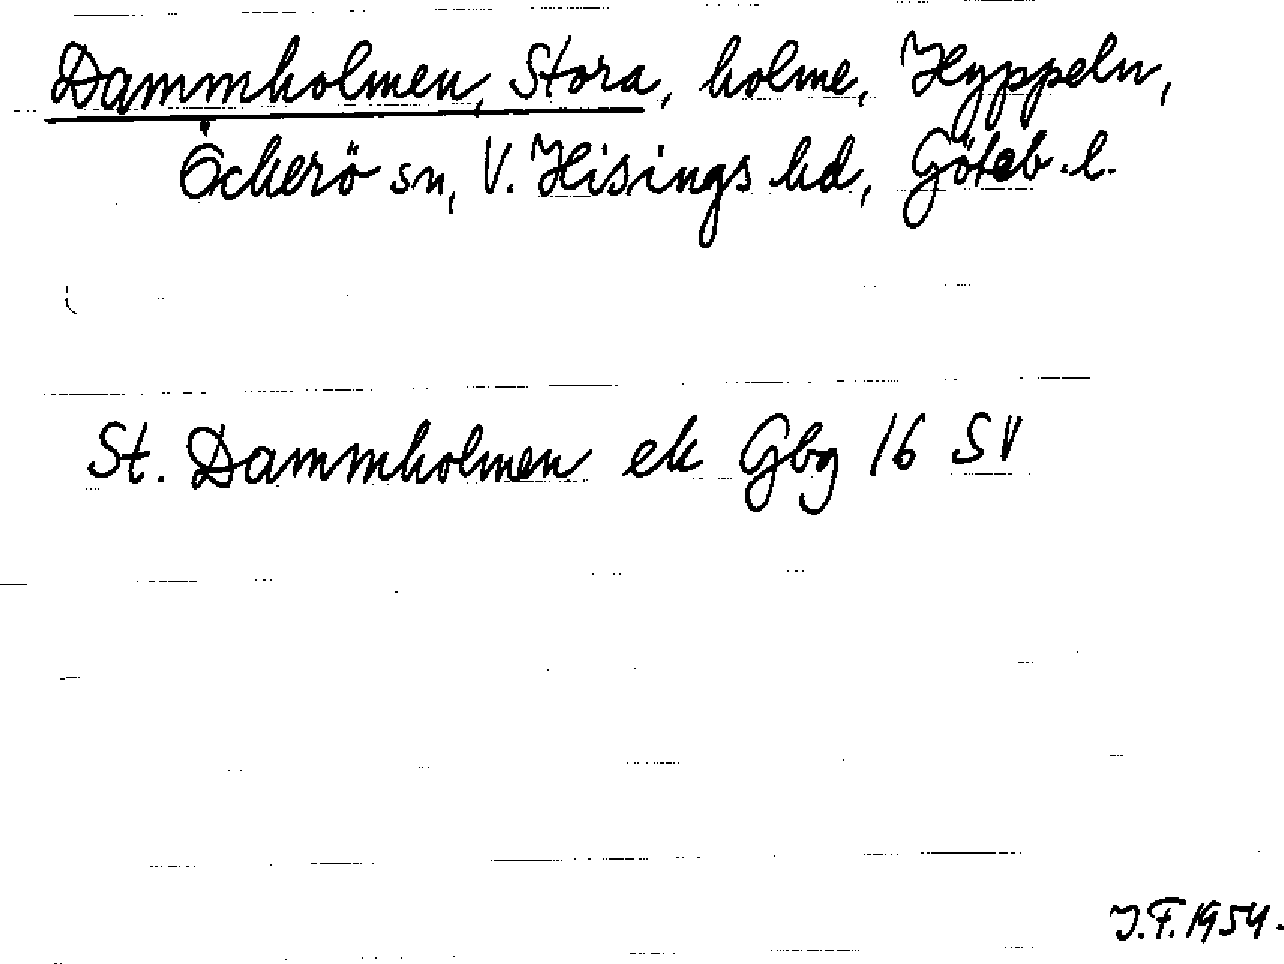 Dammholmen, Stora, holme, Hyppeln,
Öckerö sn, V. Hisings hd, Göteb. l.
St. Dammholmen ek Gbg 16 SV
J.F. 1954.